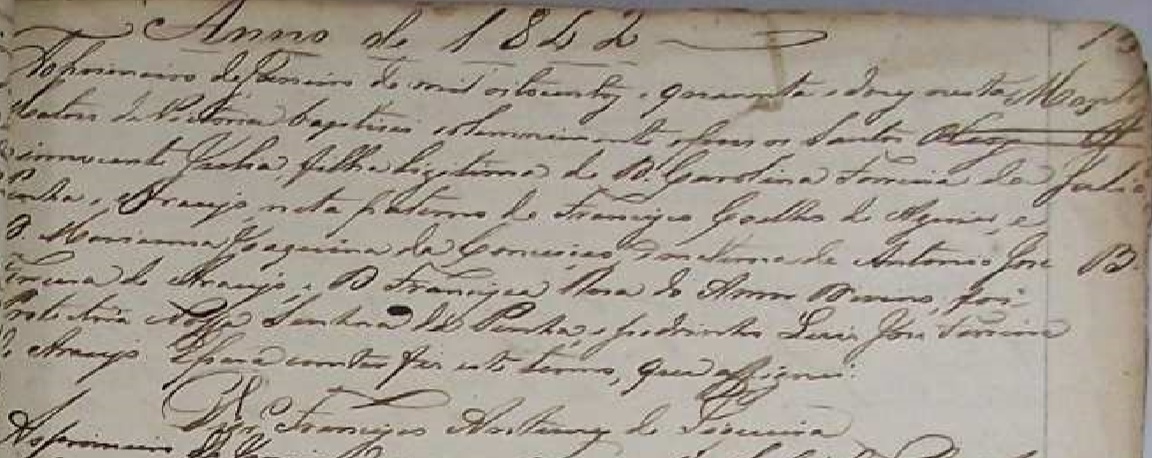 Anno de 1842
Ao primeiro de Janeiro de mil oitocentos, e quarenta e dous nesta
Matriz da Victoria baptisei solemnemente e pus os Santos
innocente Julia filha legitima de D. Carolina Ferreira da Julia
Penha, e Araujo, neta paterna de Francisco Coelho de Aguiar, e
D. Marianna Joaquina da Conceição e materna de Antonio José B.
de Araujo, e D. Francisca Rosa do Amor Divino, foi
Protectora Nossa Senhora da Penha, e padrinho Luis José Ferreira
de Araujo. E para constar fiz este termo, que assignei.
Francisco Antunes de Siqueira
Ao primeiro de